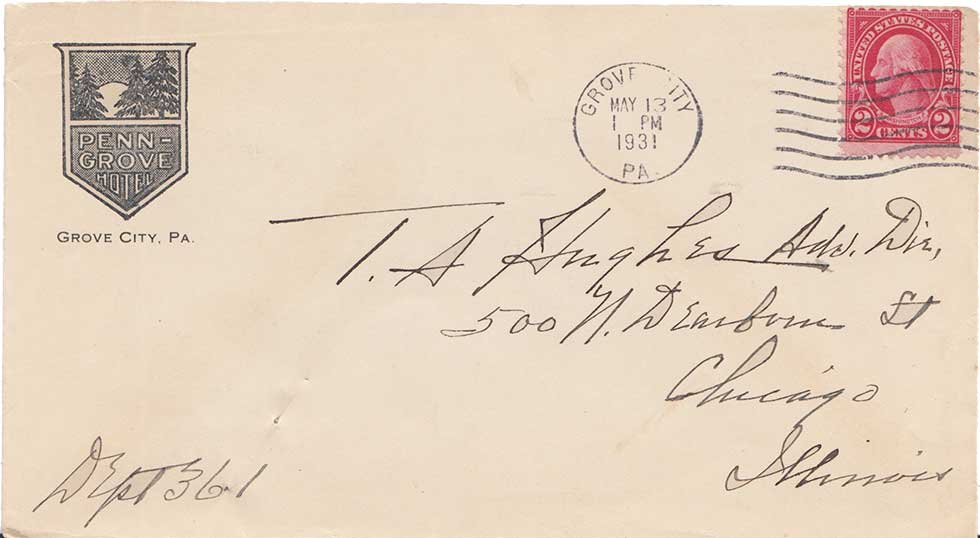 PENN-
GROVE
HOTEL
GROVE CITY, PA.
GROVE CITY
MAY 13
1 PM
1931
PA.
UNITED STATES POSTAGE
2 CENTS 2
T. A Hughes Adv. Dir,
500 N. Dearborn St
Chicago
Illinois
Dept 361